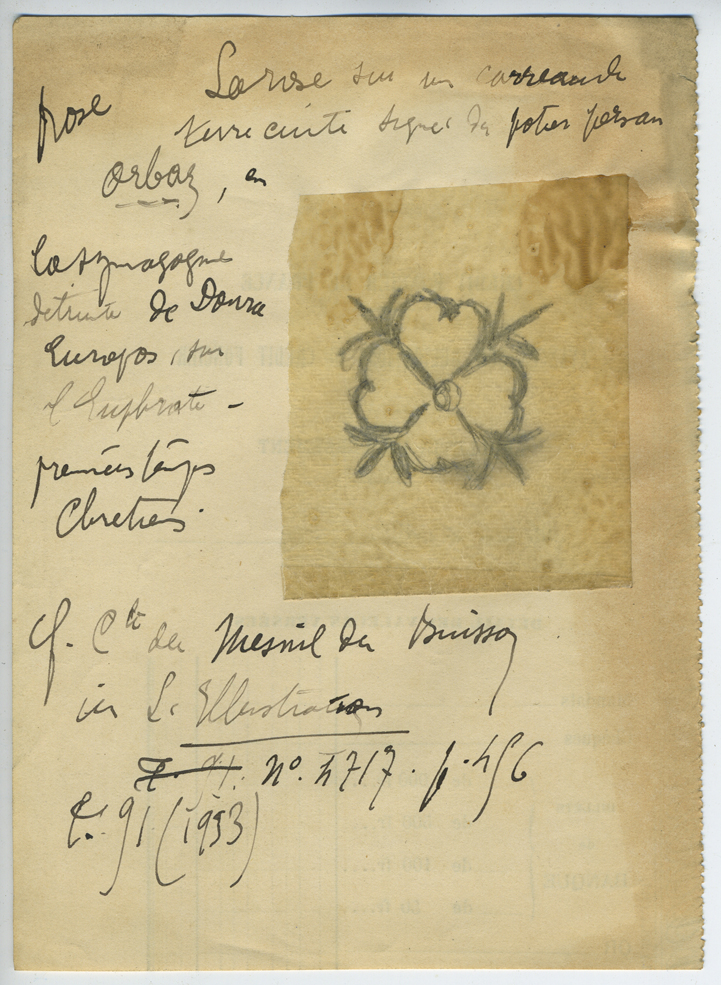 rose
La rose sur un carreau de
terre cuite signé du potier persan
Orbaz, en
la synagogue
détruite de Doura
Europos, sur
l'Euphrate -
premiers temps
Chrétiens.
Cf. Cte du Mesnil du Buisson
in L'Illustration
T. 91. No. 4717. p. 456
t. 91 (1933)